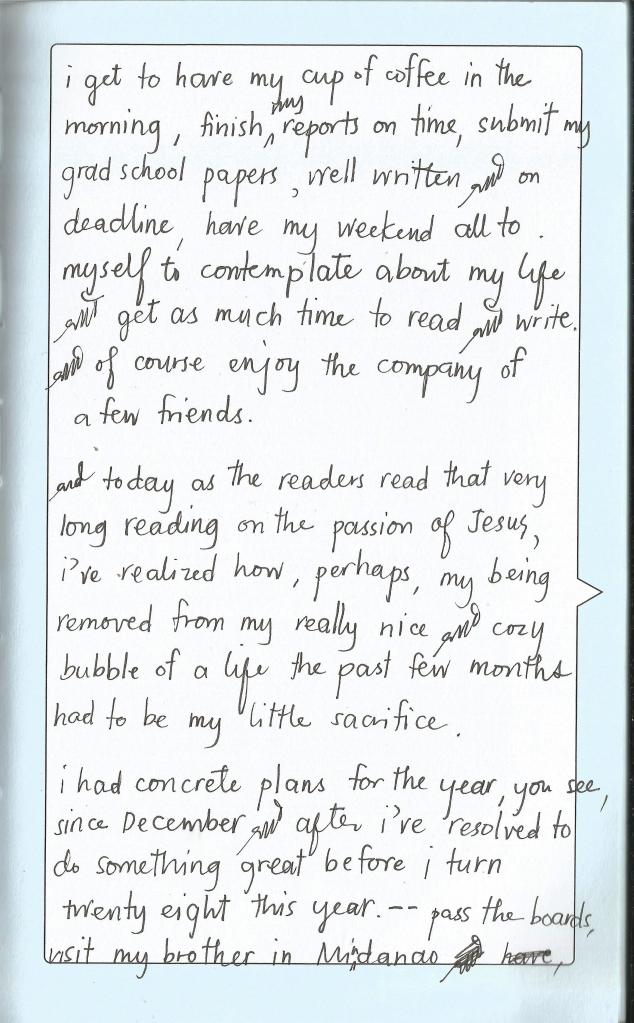 i get to have my cup of coffee in the
my
morning, finish reports on time, submit my
grad school papers, well written and on
deadline, have my weekend all to.
myself to contemplate about my life
and get as much time to read and write.
and of course enjoy the company of
a few friends.
and today as the readers read that very
long reading on the passion of Jesus,
i've realized how, perhaps, my being
removed from my really nice and cozy
bubble of a life the past few months
had to be my little sacrifice.
i had concrete plans for the year, you see,
since December and after i've resolved to
do something great before i turn
twenty eight this year. -- pass the boards,
visit my brother in Mindanao and have,